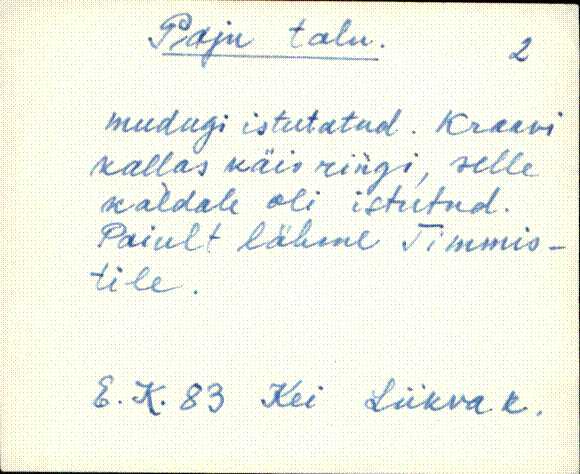 Paju talu.
2
mudugi istutatud. Kraavi
kallas käis ringi, selle
kaldale oli istutud.
Paiult lähme Timmis-
tile.
E. K. 83 Kei Liikva k.